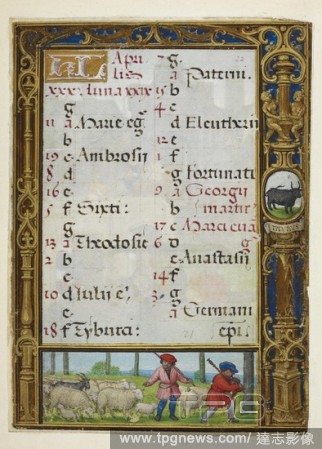 KL Apri
lis
xxx. luna xxix
g
11 a Marie eg
b
19 c Ambrosii
8 d
16 e
5 f Sixti:
g
13 a Theodosie
2 b
c
10 d Iulii e.
e
18 f Tyburci:
7 g
a Paterni.
15 b
4 c
d Eleutherii
12 e
1 f
g Fortunati
9 a Georgii
b martir
17 c Marci euā
6 d
e Anastasii
14 f
3 g
a Germani
epi.
TAURUS
TPG
www.tpgnews.com/ 達志影像